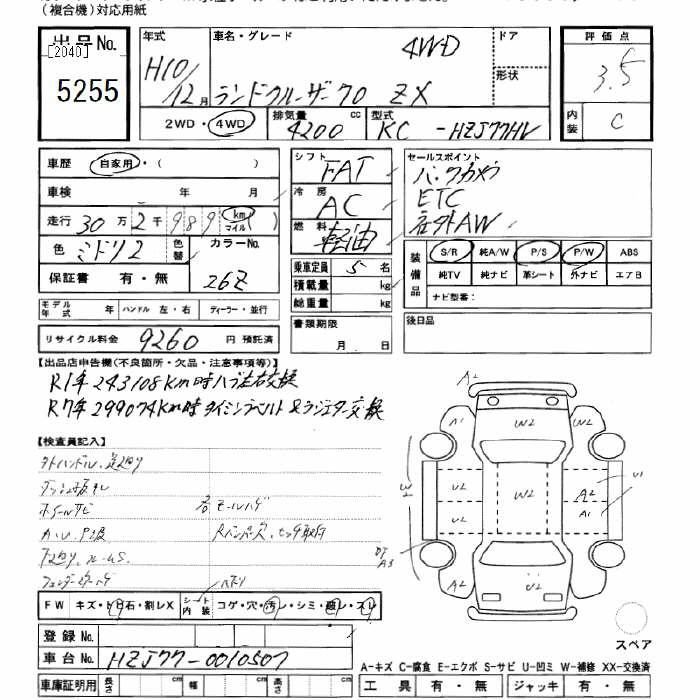 (複合機)対応用紙
出品No.
[2040]
5255
年式 H10/12月
車名・グレード 4WD
ランドクルーザー70 ZX
ドア
形状
2WD・4WD
排気量 4200 cc
型式 KC-HZJ77HV
評価点 3.5
内装 C
車歴 自家用・( )
車検 年 月
走行 30万2千989 km マイル( )
色 ミドリ2 色替 カラーNo. 26Z
保証書 有・無
モデル年式 年 ハンドル 左・右 ディーラー・並行
リサイクル料金 9260 円 預託済
シフト FAT
冷房 AC
燃料 軽油
乗車定員 5 名
積載量 kg
総重量 kg
書類期限 月 日
セールスポイント
バックカメラ
ETC
社外AW
装備品
S/R 純A/W P/S P/W ABS
純TV 純ナビ 革シート 外ナビ エアB
ナビ型番:
後日品
【出品店申告欄(不良箇所・欠品・注意事項等)】
R1年243108km時ハブ左右交換
R7年299074km時タイミングベルト&ラジエター交換
【検査員記入】
FW キズ・トビ石・割レX
シート内装 コゲ・穴・汚レ・シミ・破レ・スレ
登録No.
車台No. HZJ77-0010507
車庫証明用 長さ cm 幅 cm 高さ cm
A2
A1 W2 W2
U2 W2 A2 U1
U2 A1
W2
A2 U2
スペア
A-キズ C-腐食 E-エクボ S-サビ U-凹ミ W-補修 XX-交換済
工具 有・無 ジャッキ 有・無